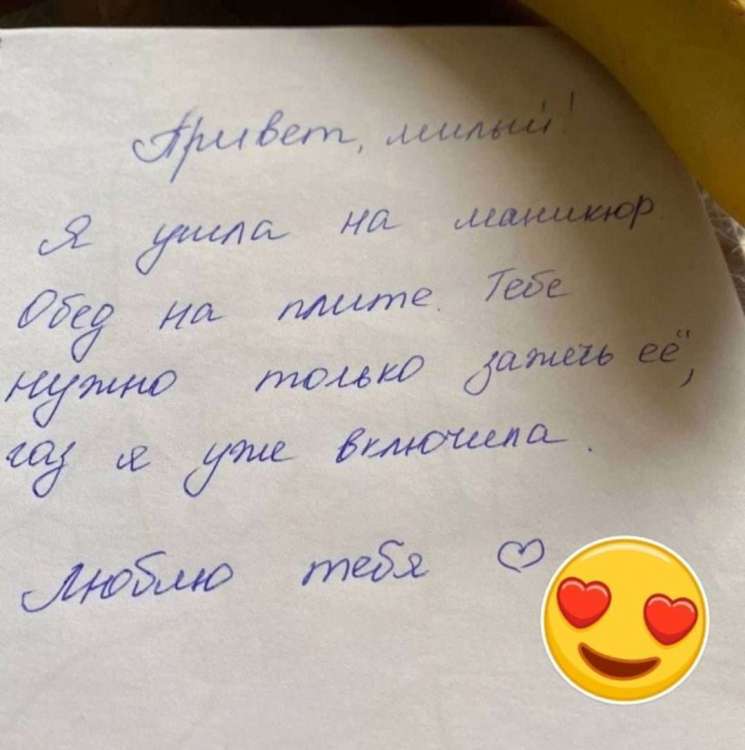 Привет, милый!
Я ушла на маникюр
Обед на плите. Тебе
нужно только зажечь её,
газ я уже включила.
Люблю тебя ♡